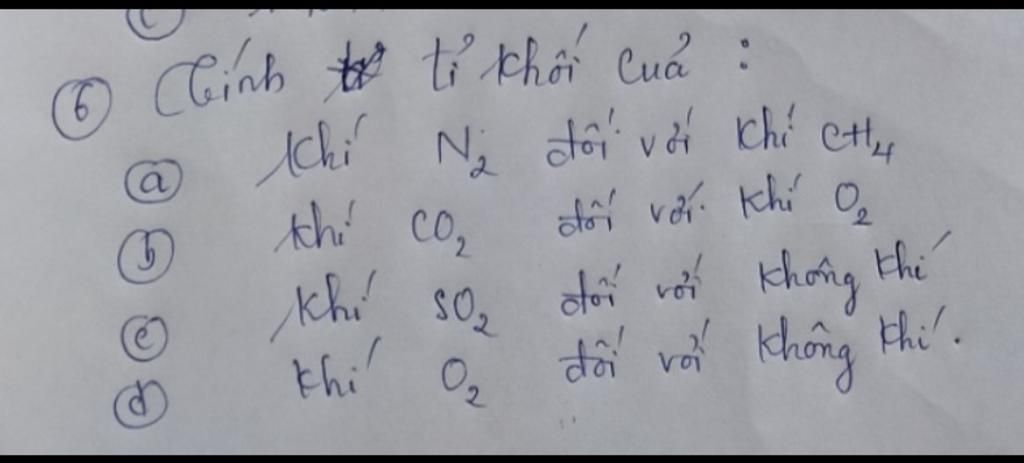 ⑥ Tính tỉ khối của :
ⓐ Khí N₂ đối với khí CH₄
ⓑ khí CO₂ đối với khí O₂
ⓒ Khí SO₂ đối với không khí
ⓓ khí O₂ đối với không khí.